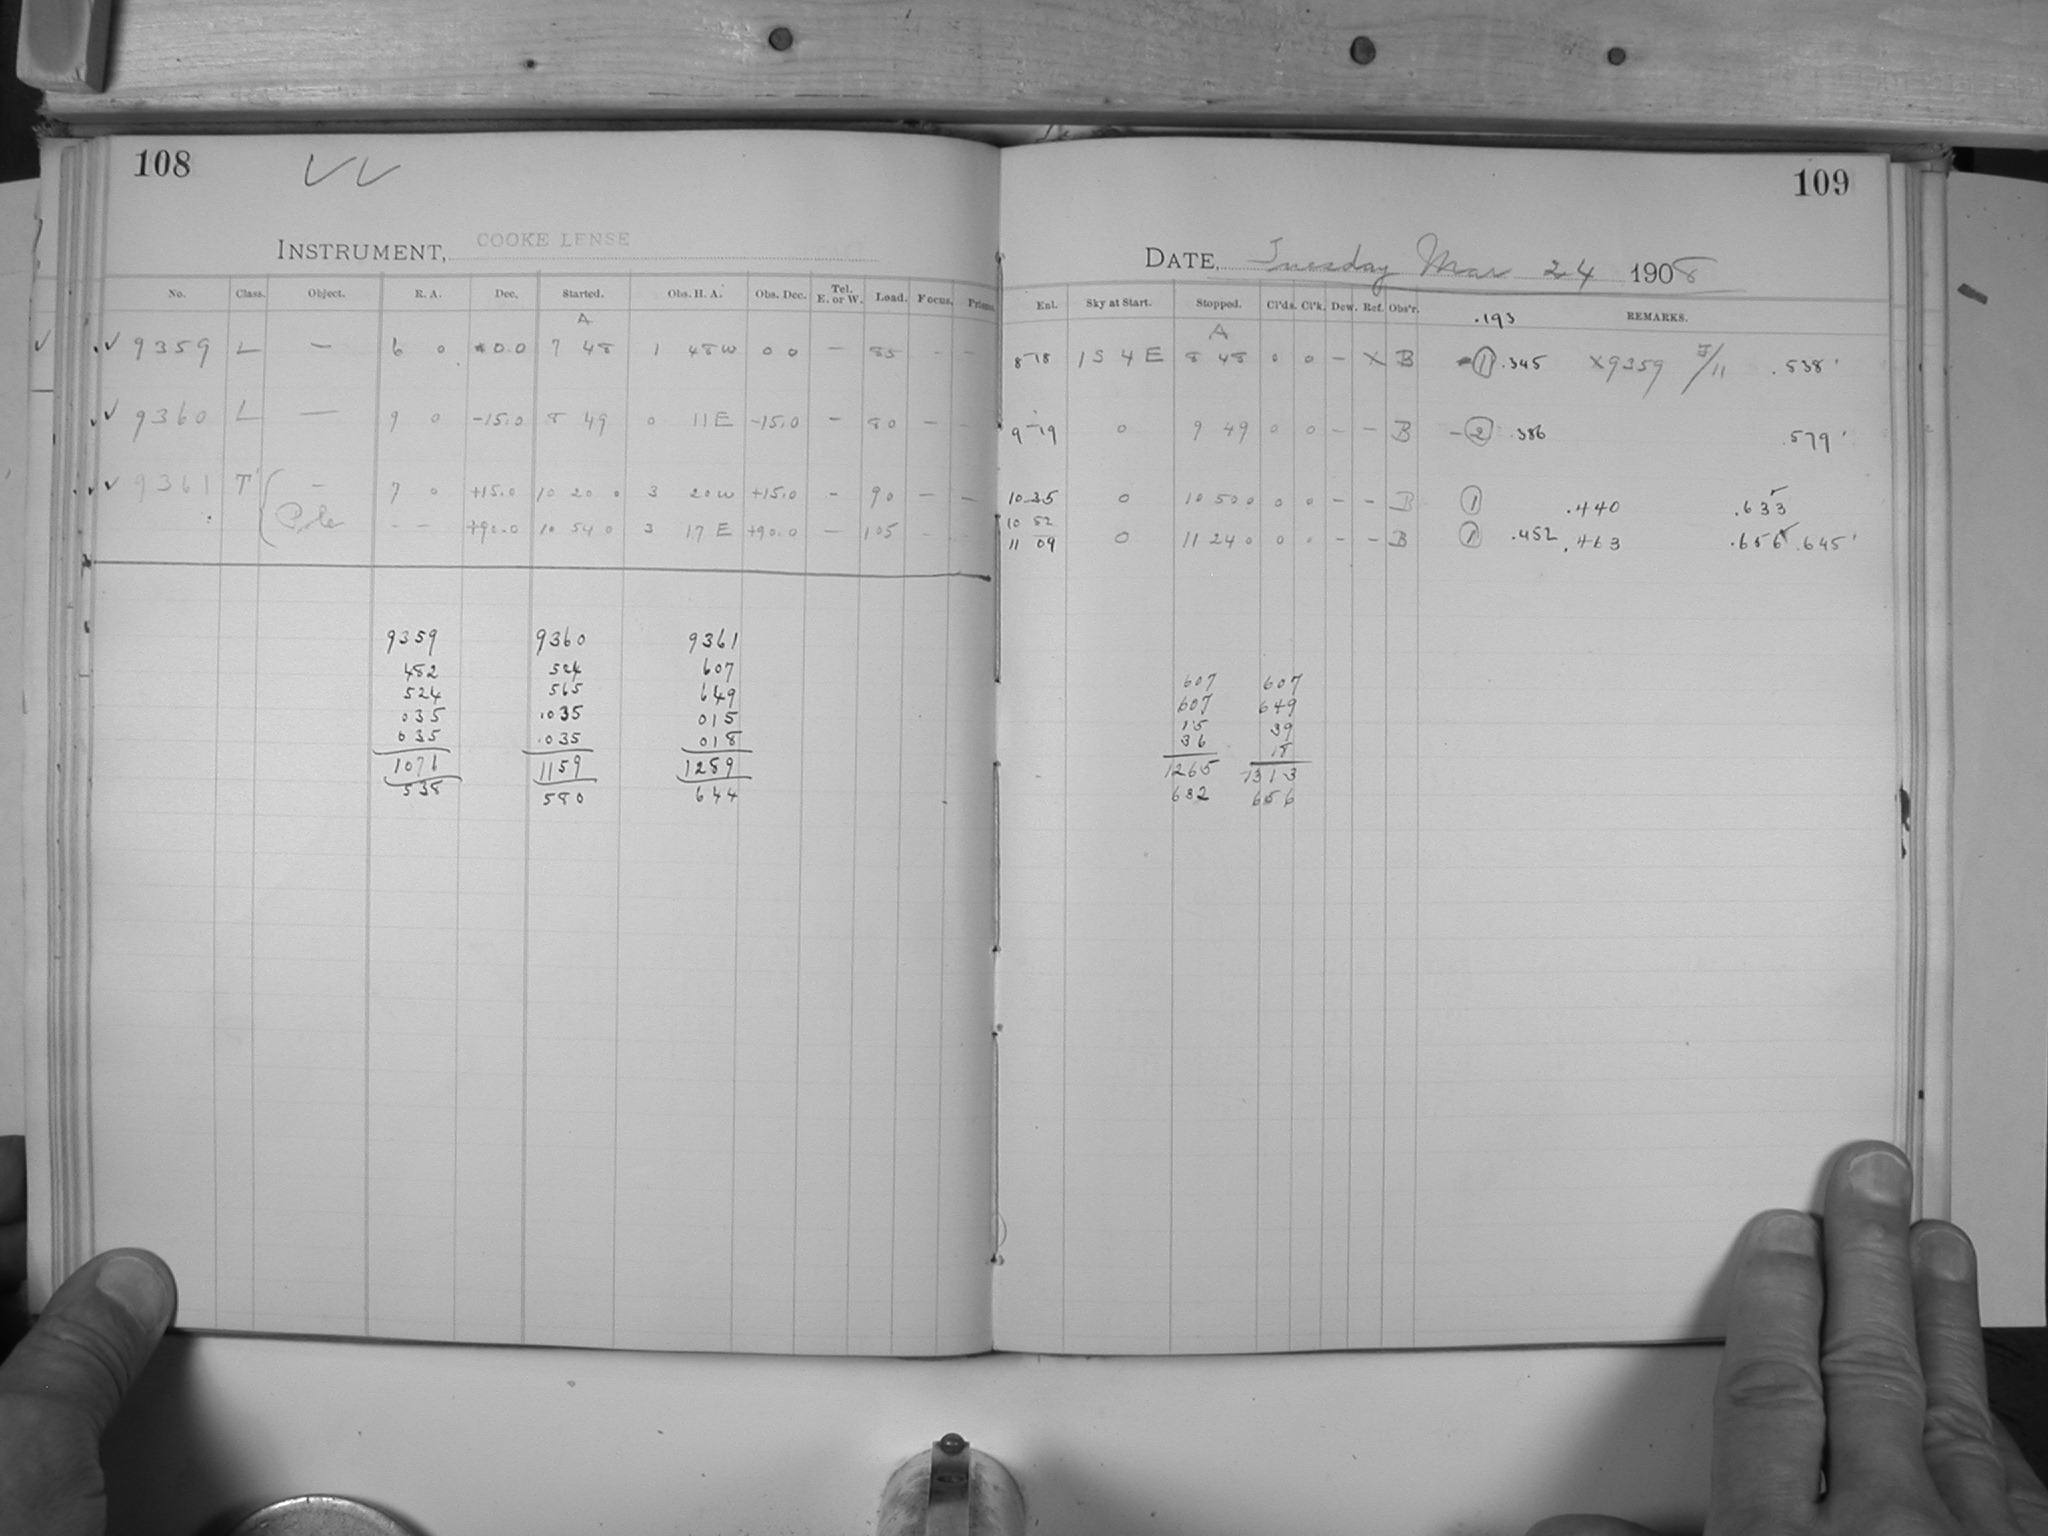 108
INSTRUMENT, COOKE LENSE
No. Class. Object. R. A. Dec. Started. Obs. H. A. Obs. Dec. Tel. E. or W. Load. Focus. Prisms.
A
✓ .✓ 9359 L — 6 0 0.0 7 48 1 48 W 0 0 — 85 - -
.✓ 9360 L — 9 0 -15.0 8 49 0 11 E -15.0 — 80 — -
.✓ 9361 T — 7 0 +15.0 10 20 0 3 20 W +15.0 - 90 — —
Pole - - +90.0 10 54 0 3 17 E +90.0 — 105 - -
9359 9360 9361
482 524 607
524 565 649
035 .035 015
035 .035 018
1071 1159 1289
538 580 644
109
DATE, Tuesday Mar 24 1908
Enl. Sky at Start. Stopped. Cl'ds. Cl'k. Dew. Ref. Obs'r. REMARKS.
.193
A
8 18 1 S 4 E 8 48 0 0 — X B 1 .345 X9359 J/11 .538'
9 19 0 9 49 0 0 — — B - 2 .386 .579'
10 35 0 10 50 0 0 0 — — B 1 .440 .633
10 52
11 09 0 11 24 0 0 0 — — B 1 .452 .463 .656 .645'
607 607
607 649
15 39
36 18
1265 1313
632 656